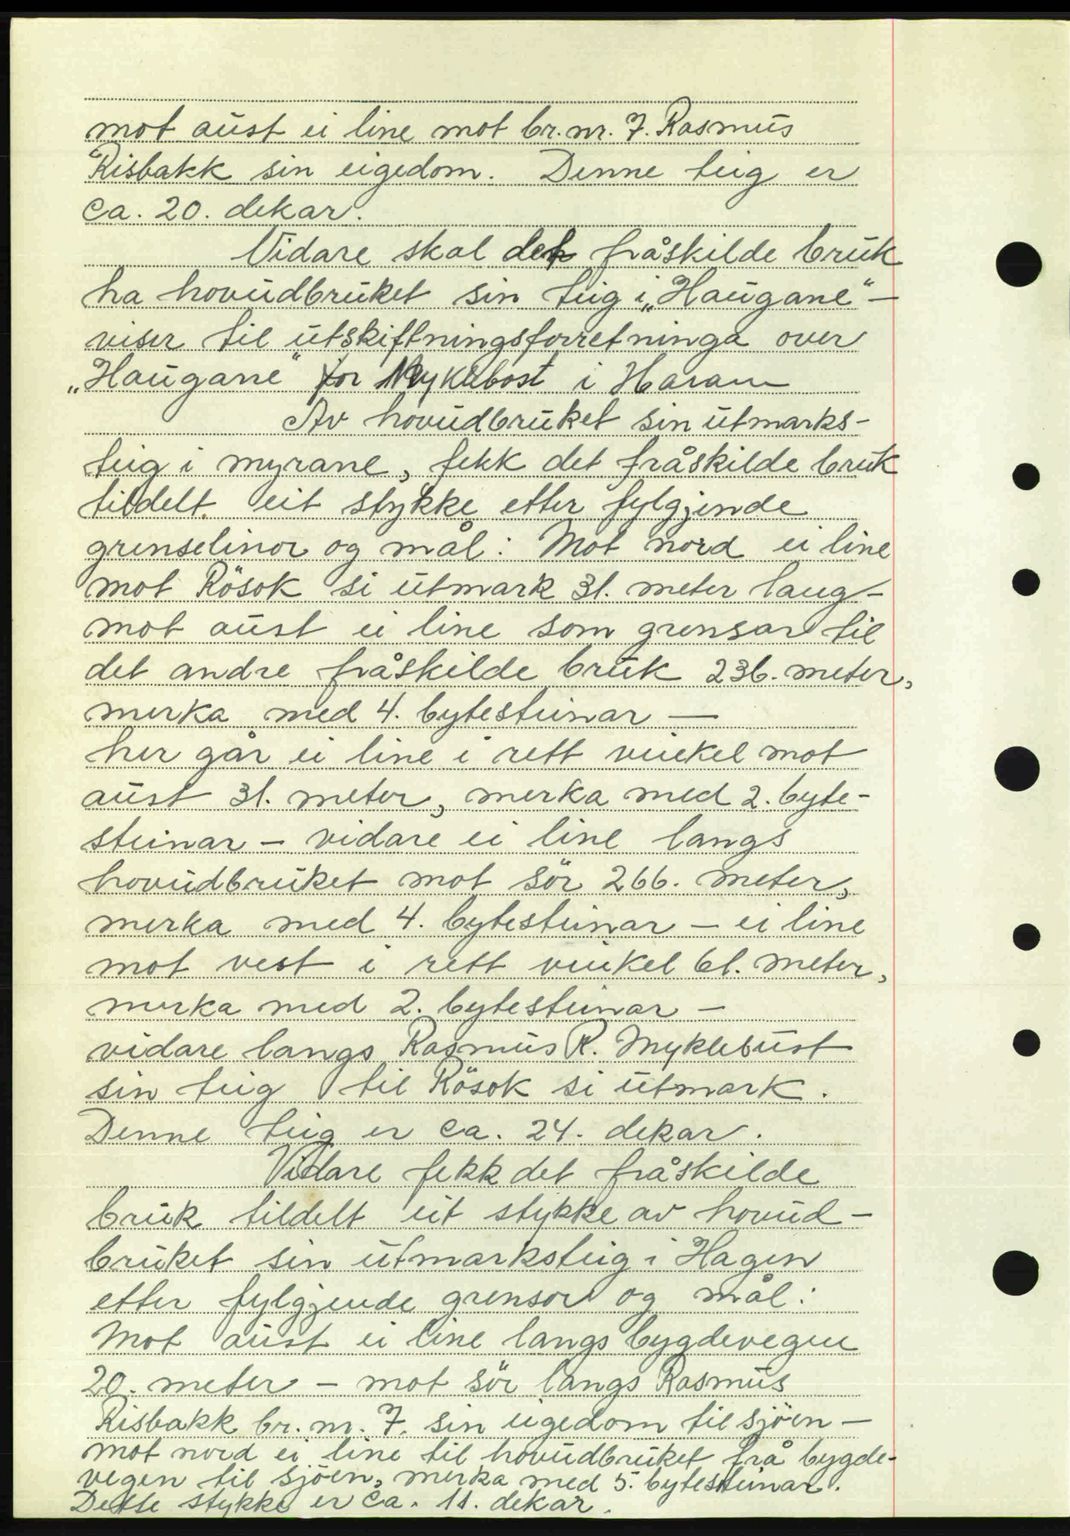 mot aust ei line mot br. nr. 7. Rasmus
Risbakk sin eigedom. Denne teig er
ca. 20. dekar.
Vidare skal det fråskilde bruk
ha hovudbruket sin teig i "Haugane" –
viser til utskiftningsforretninga over
"Haugane" for Myklebost i Haram
Av hovudbruket sin utmarks-
teig i myrane, fekk det fråskilde bruk
tildelt eit stykke etter fylgjende
grenselinor og mål: Mot nord ei line
mot Rösok si utmark 31. meter lang –
mot aust ei line som grensar til
det andre fråskilde bruk 236. meter,
merka med 4. bytesteinar –
her går ei line i rett vinkel mot
aust 31. meter, merka med 2. byte-
steinar – vidare ei line langs
hovudbruket mot sör 266. meter,
merka med 4. bytesteinar – ei line
mot vest i rett vinkel 61. meter,
merka med 2. bytesteinar –
vidare langs Rasmus R. Myklebust
sin teig til Rösok si utmark.
Denne teig er ca. 24. dekar.
Vidare fekk det fråskilde
bruk tildelt eit stykke av hovud-
bruket sin utmarksteig i Hagen
etter fylgjende grensor og mål:
Mot aust ei line langs bygdevegen
20. meter – mot sör langs Rasmus
Risbakk br. nr. 7. sin eigedom til sjöen –
mot nord ei line til hovudbruket frå bygde-
vegen til sjöen, merka med 5. bytesteinar.
Dette stykke er ca. 11. dekar.